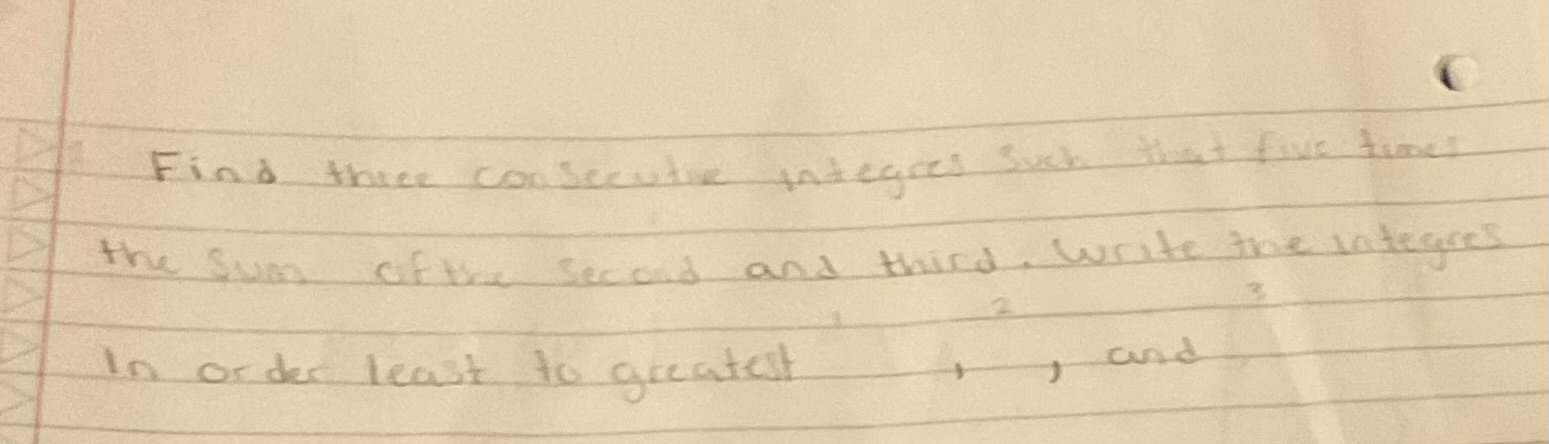 Find three consecutive integres such that five times
the sum of the second and third. Write the integres
1 2 3
In order least to greatest , , and